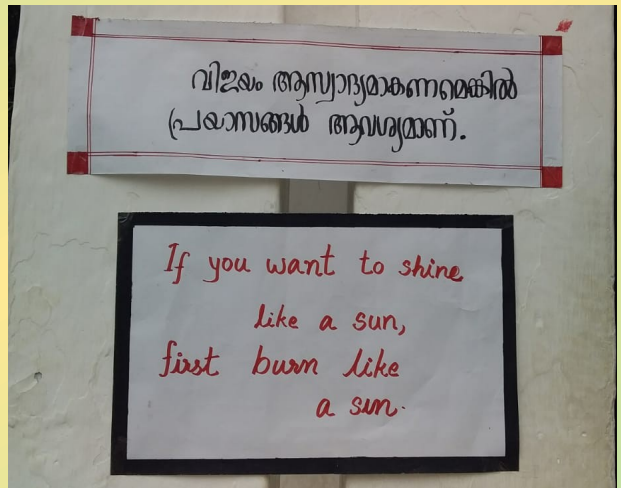 വിജയം ആസ്വാദ്യമാകണമെങ്കിൽ
പ്രയാസങ്ങൾ ആവശ്യമാണ്.
If you want to shine
like a sun,
first burn like
a sun.